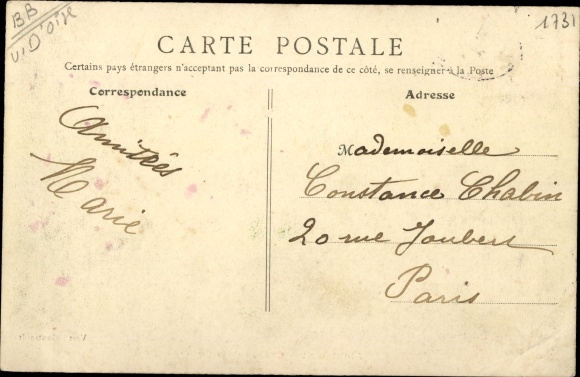 BB
V. D'OISE
1731
CARTE POSTALE
Certains pays étrangers n'acceptant pas la correspondance de ce côté, se renseigner à la Poste
Correspondance
Amitiés
Marie
Adresse
Mademoiselle
Constance Chabin
20 rue Joubert
Paris